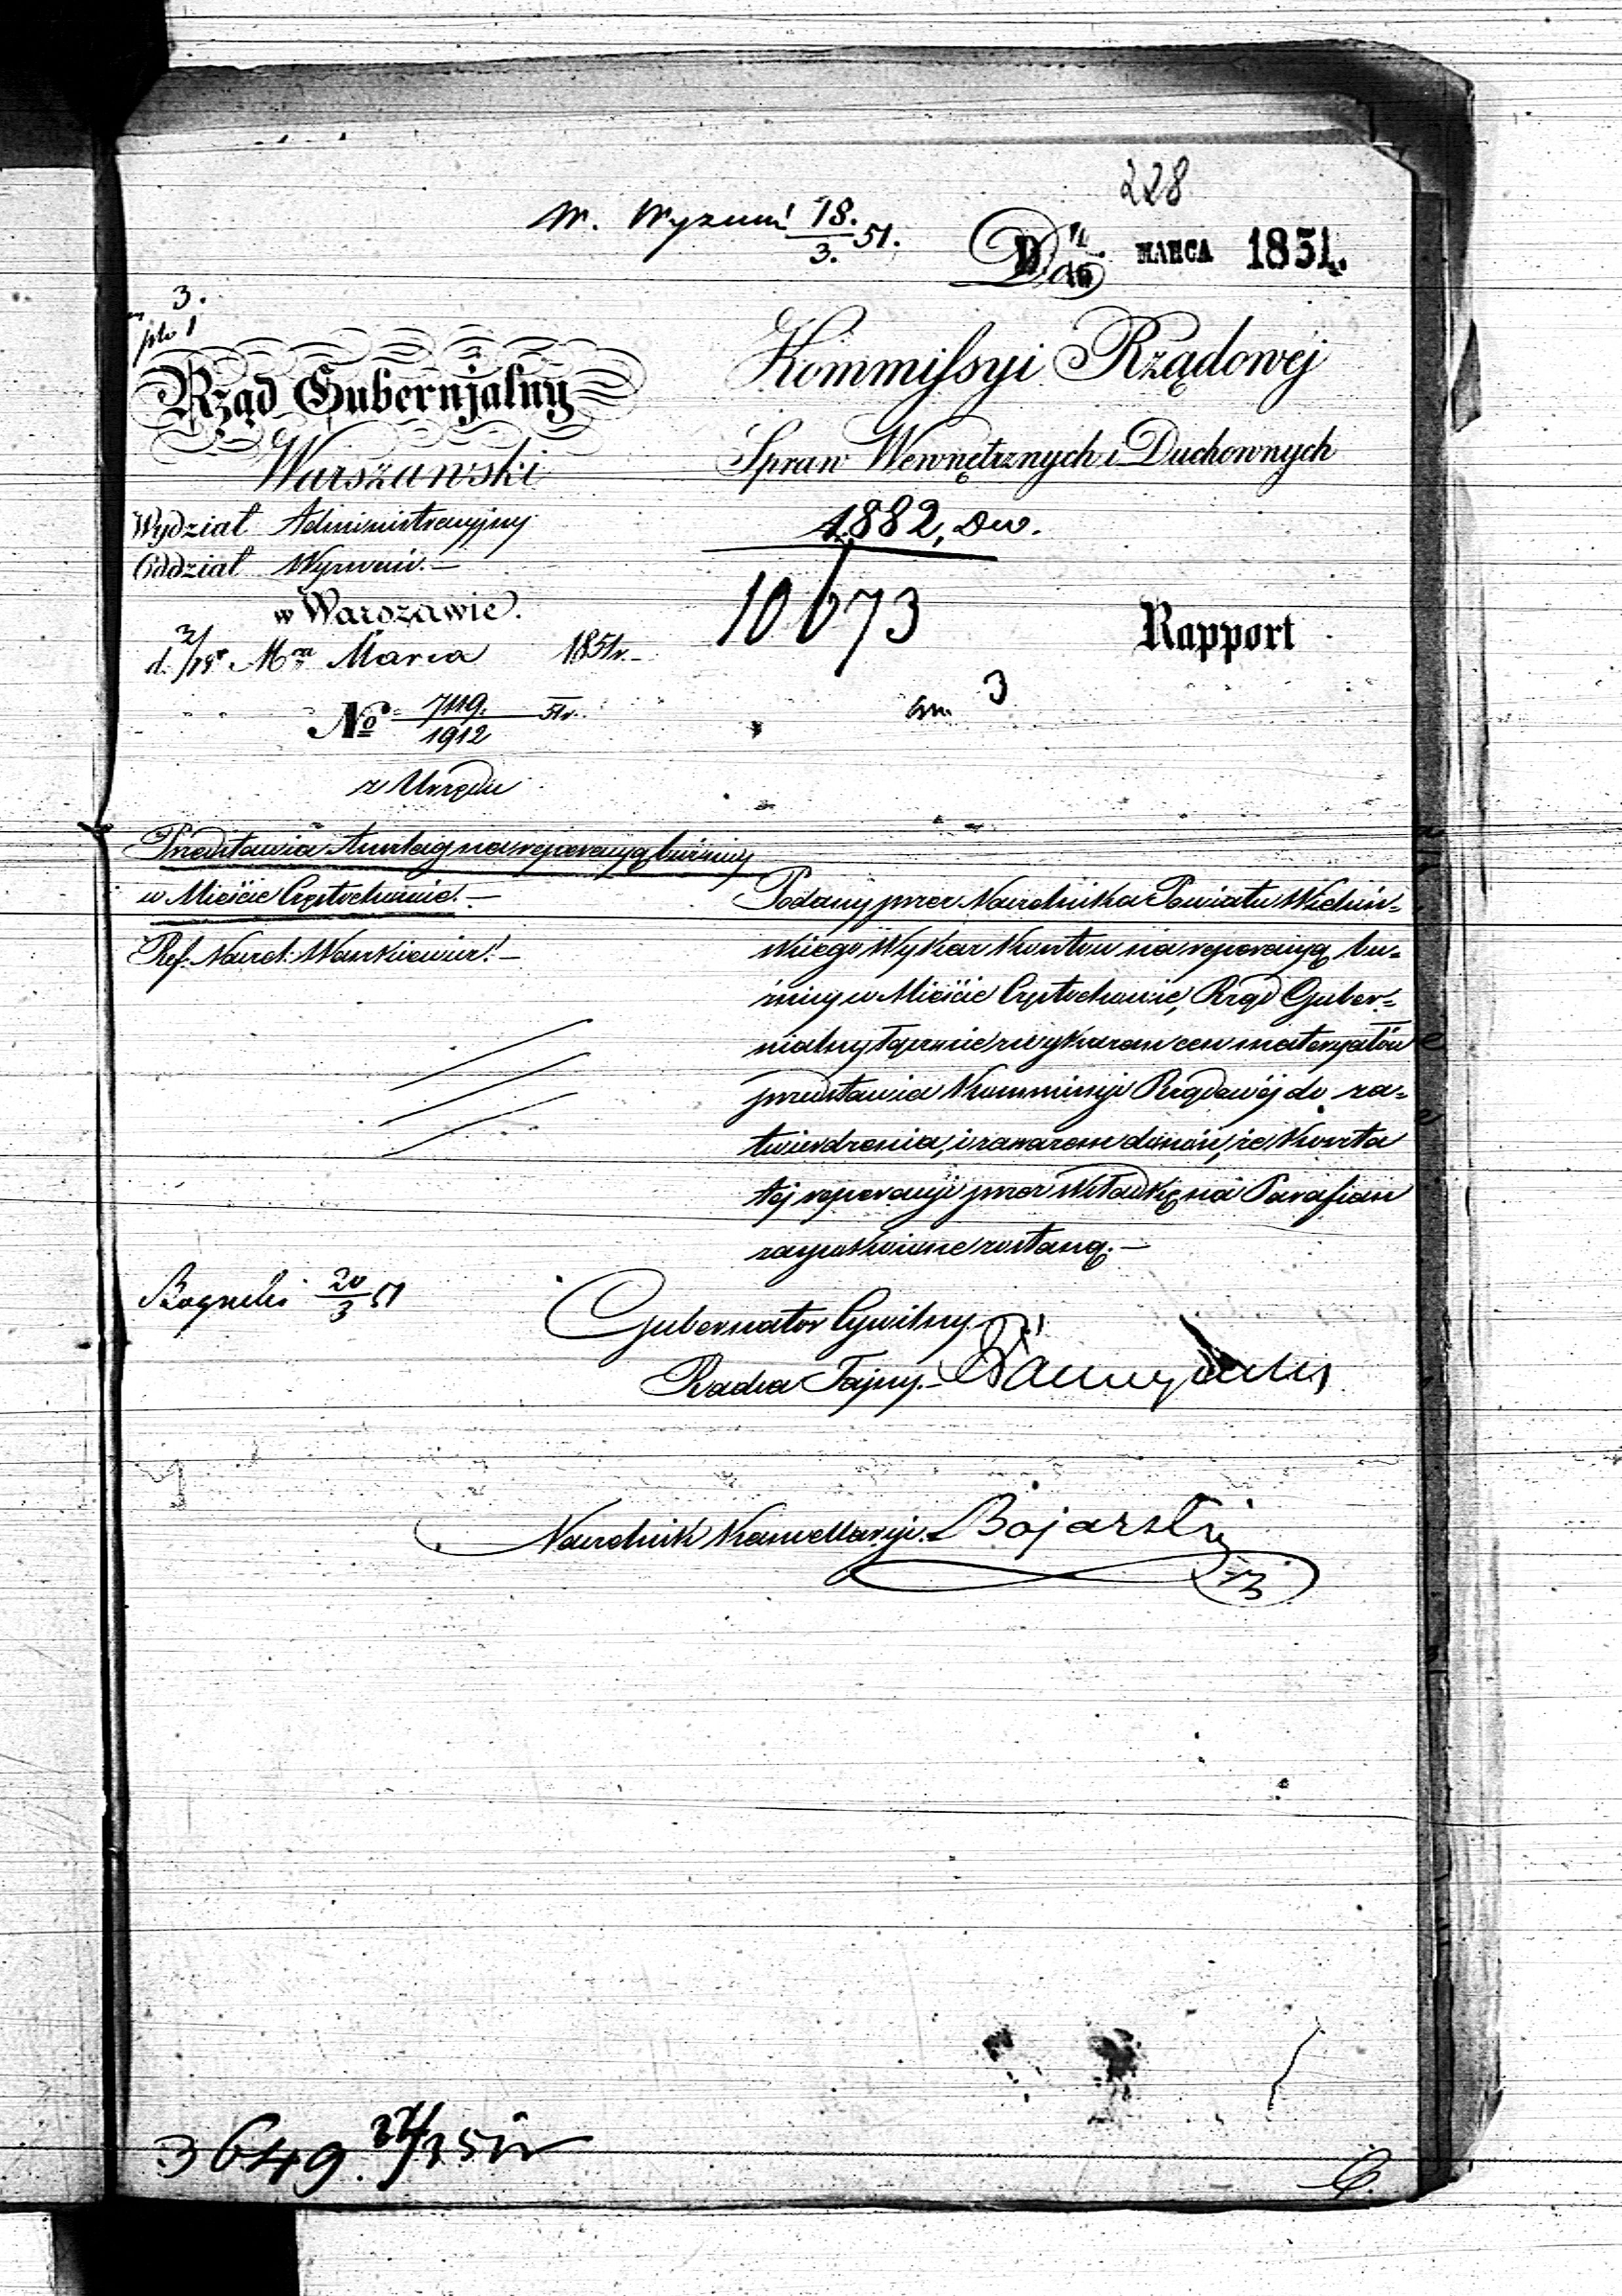 228
W. Wyznań 18./3. 51.
D 4/16 MARCA 1851.
3.
pto 1
Rząd Gubernjalny
Warszawski
Wydział Administracyjny
Oddział Wyznań.—
w Warszawie.
d. 3/15 Mca Marca 1851 r.—
№ 7119./1912 51 r.
z Urzędu
Kommissyi Rządowéj
Spraw Wewnętrznych i Duchownych
4882, Dw.
10673
Rapport
3
Przedstawia Anszlag na reperacyą bużnicy
w Mieście Częstochowie.—
Ref. Naczel:
Podany przez Naczelnika Powiatu Wieluń-
skiego Wykaz Kosztów na reperacyą bu-
żnicy w Mieście Częstochowie, Rząd Guber-
nialny łącznie z wykazem cen materyałów
przedstawia Kommissyi Rządowéj do za-
twierdzenia, i zarazem donosi, że Koszta
téj reperacyi przez składkę na Parafian
zaspokoione zostaną.—
20/3 51
Gubernator Cywilny
Radca Tajny.—
Naczelnik Kancellaryi. Bojarski
3649.